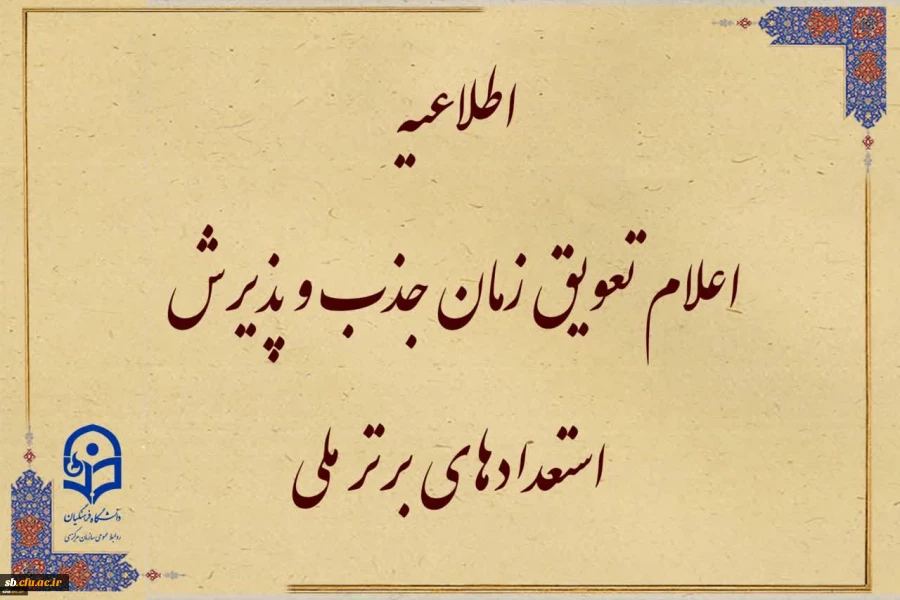 اطلاعیه
اعلام تعویق زمان جذب و پذیرش
استعدادهای برتر ملی
دانشگاه فرهنگیان
روابط عمومی سازمان مرکزی
sb.cfu.ac.ir